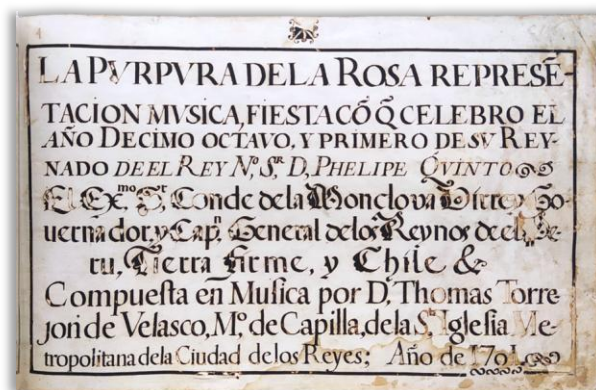 LA PVRPVRA DE LA ROSA REPRESẼ-
TACION MVSICA, FIESTA CÕ Q̃ CELEBRO EL
AÑO DECIMO OCTAVO, Y PRIMERO DE SV REY-
NADO DE EL REY Nº. Sʳ. D, PHELIPE QVINTO
El Exᵐᵒ. Sʳ. Conde de la Monclova Virrey Go-
uernador, y Capⁿ. General de los Reynos de el Pe-
ru, Tierra firme, y Chile &
Compuesta en Musica por D, Thomas Torre-
jon de Velasco, Mº. de Capilla, de la Sᵗᵃ Iglesia Me-
tropolitana de la Ciudad de los Reyes; Año de 1701